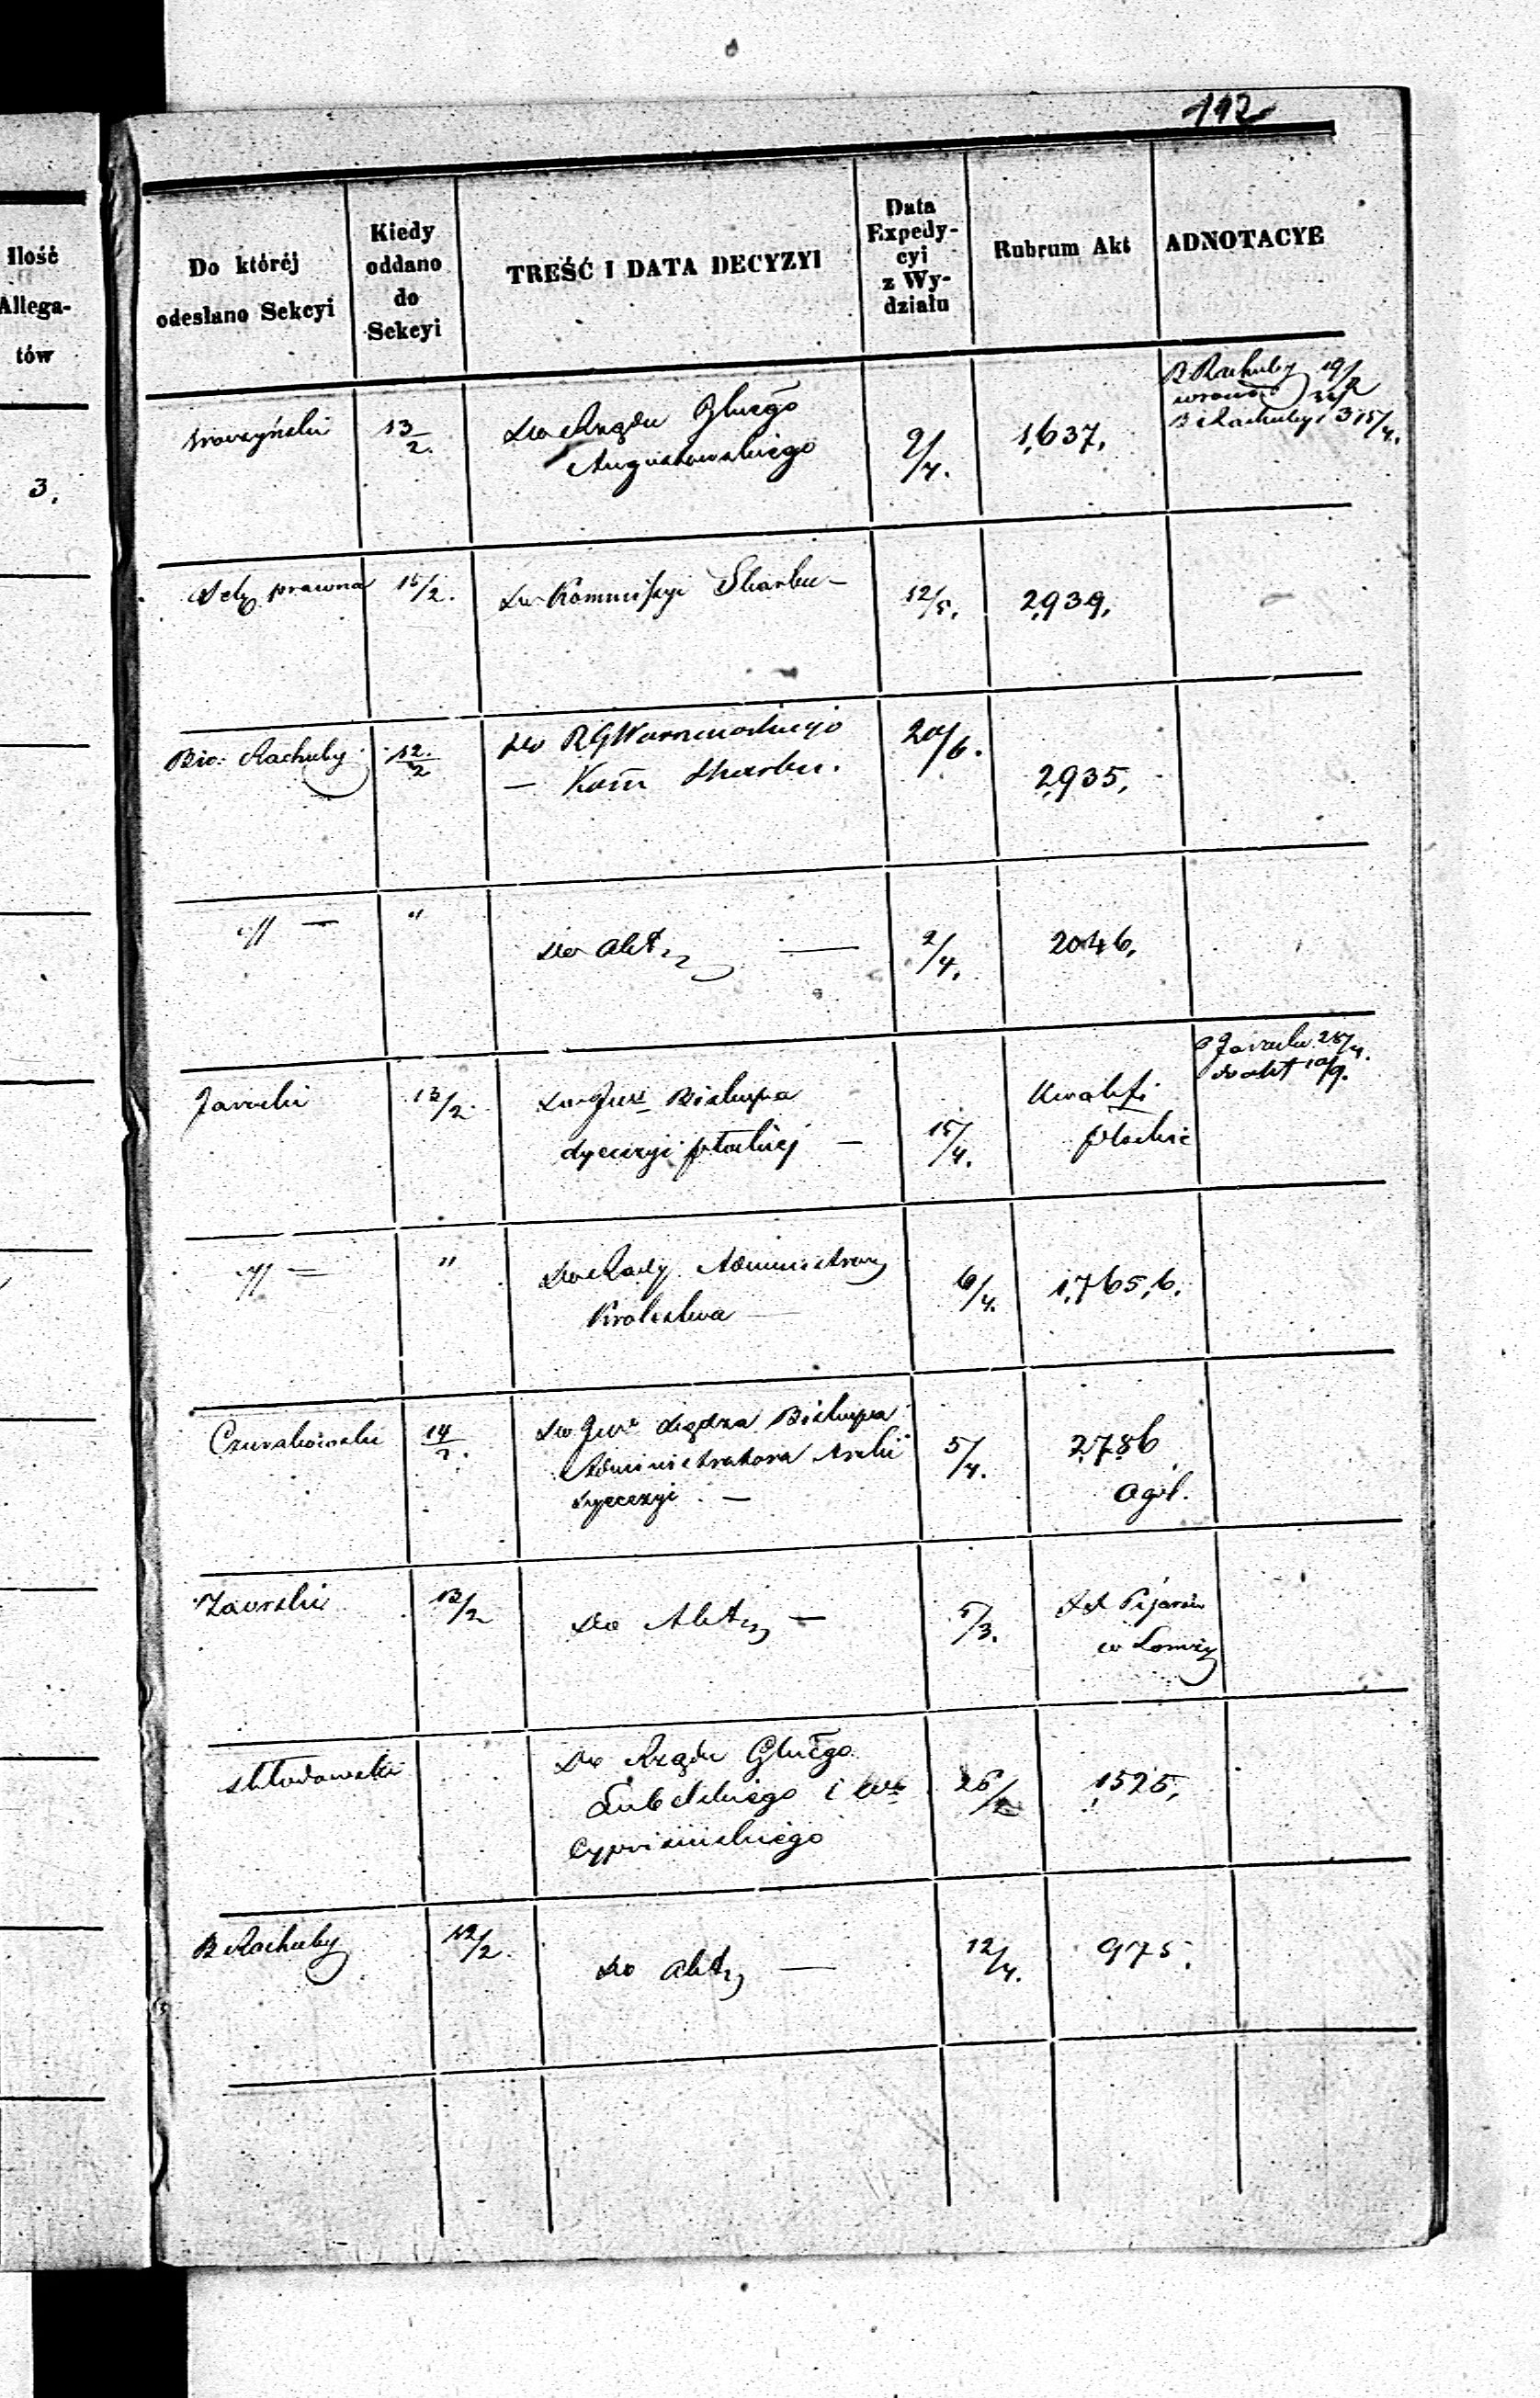 112
Ilość
Allega-
tów
3.
Do której
odesłano Sekcyi
Kiedy
oddano
do
Sekcyi
TREŚĆ I DATA DECYZYI
Data
Expedy-
cyi
z Wy-
działu
Rubrum Akt
ADNOTACYE
13/2.
Do Rządu Glnego
Augustowskiego
9/4.
1,637.
B Rachuby 19/2
B Rachuby 3 15/4.
Sek prawna
15/2.
Do Kommissyi Skarbu —
12/5.
2,939.
Bio: Rachuby
12/2
Do RG Warszawskiego
— Kom Skarbu.
20/6.
2,935.
" —
"
Do akt —
9/4.
2046.
Jarocki
13/2.
Do Jws Biskupa
dyecezyi płockiej —
15/4.
Kwalifi
płockie
P Jarocki 28/4.
do akt 10/9.
" =
"
Do Rady Administrac
Królestwa —
6/4.
1,765,6.
14/2.
Do Jws Księdza Biskupa
Administratora Archi
dyecezyi. —
5/4.
2,786
ogól.
Zaorski
13/2
Do Akt —
5/3.
XX Pijarów
w Łomży
Skłodowski
Do Rządu Glnego
Lubelskiego i
26/2
1525.
B Rachuby
12/2.
Do akt —
12/4.
975.